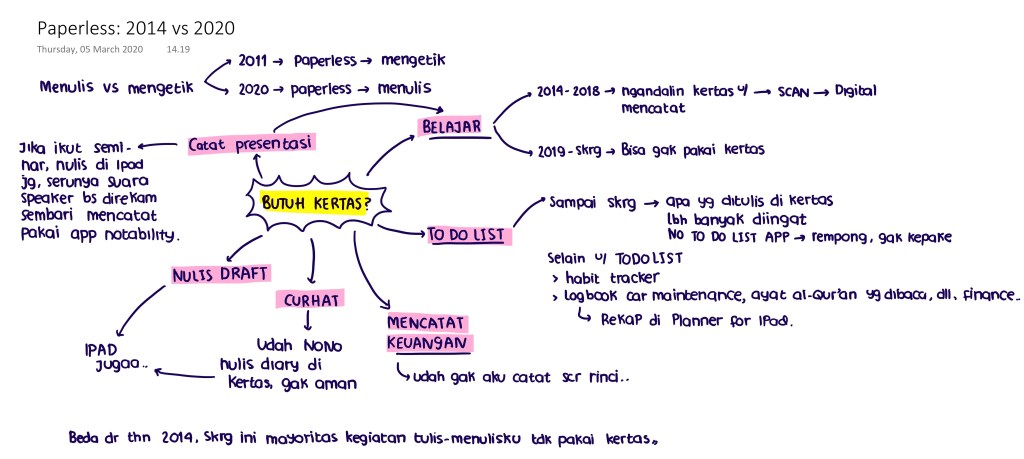 Paperless: 2014 vs 2020
Thursday, 05 March 2020 14.19
Menulis vs mengetik
2011 → Paperless → mengetik
2020 → paperless → menulis
Catat presentasi
Jika ikut semi-
nar, nulis di Ipad
jg, serunya suara
speaker bs direkam
sembari mencatat
pakai app notability.
BELAJAR
2014-2018 → ngandalin kertas u/ → SCAN → Digital
mencatat
2019-skrg → Bisa gak pakai kertas
BUTUH KERTAS?
TO DO LIST
Sampai skrg → apa yg ditulis di kertas
lbh banyak diingat
NO TO DO LIST APP → rempong, gak kepake
Selain u/ TODOLIST
> habit tracker
> logbook car maintenance, ayat al-Qur'an yg dibaca, dll, finance..
↳ Rekap di Planner for IPad.
NULIS DRAFT
IPAD
jugaa..
CURHAT
Udah NONO
nulis diary di
kertas, gak aman
MENCATAT
KEUANGAN
↳ udah gak aku catat scr rinci..
Beda dr thn 2014, skrg ini mayoritas kegiatan tulis-menulisku tdk pakai kertas.